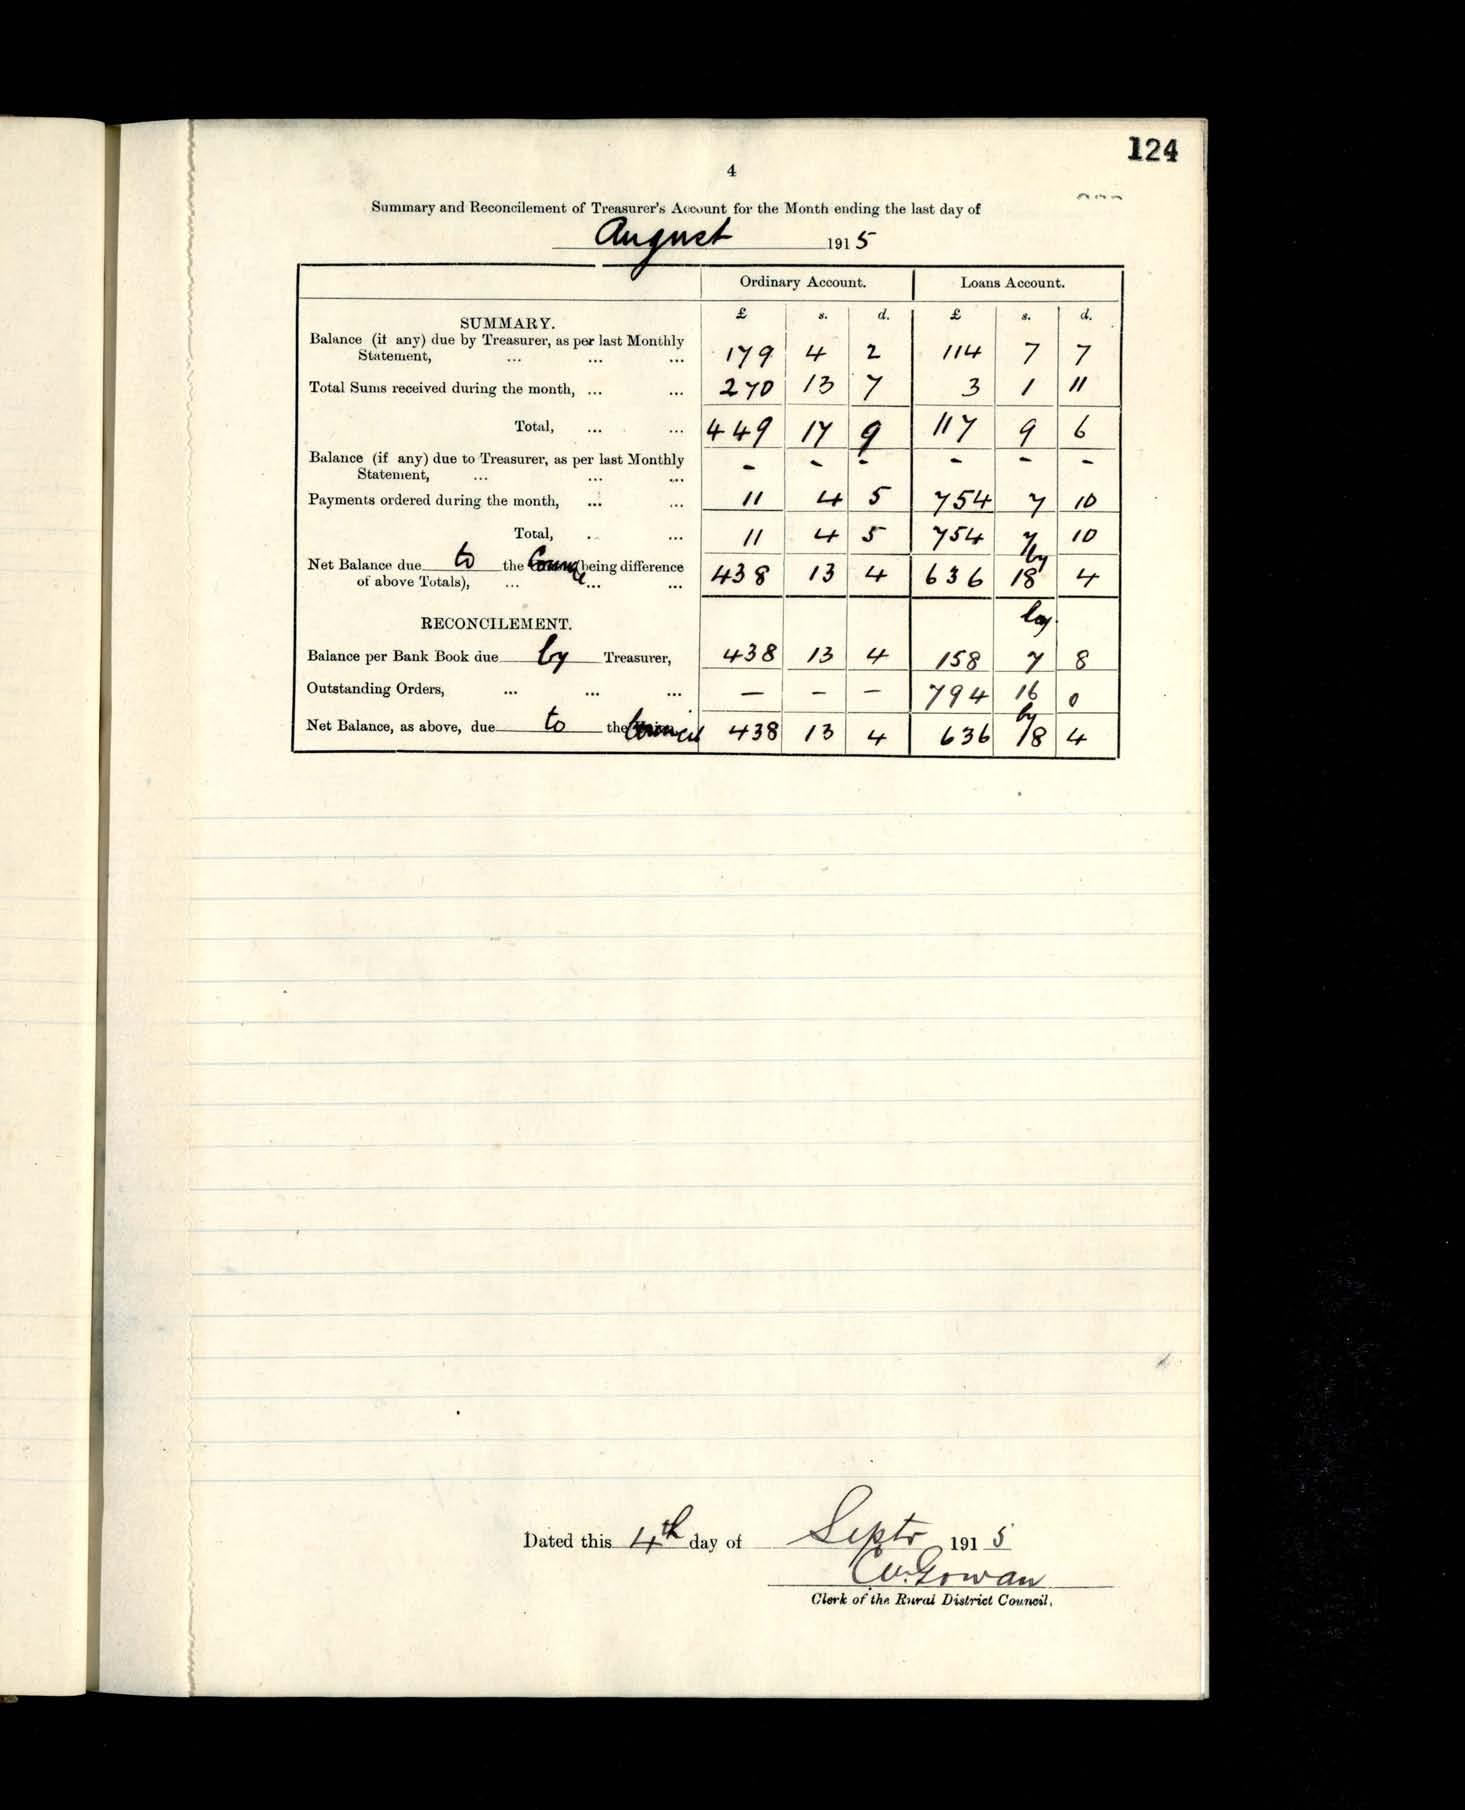 124
4
Summary and Reconcilement of Treasurer's Account for the Month ending the last day of
August 1915
Ordinary Account. Loans Account.
£ s. d. £ s. d.
SUMMARY.
Balance (if any) due by Treasurer, as per last Monthly
Statement, ... ... ... 179 4 2 114 7 7
Total Sums received during the month, ... ... 270 13 7 3 1 11
Total, ... ... 449 17 9 117 9 6
Balance (if any) due to Treasurer, as per last Monthly
Statement, ... ... ... - - - - - -
Payments ordered during the month, ... ... 11 4 5 754 7 10
Total, . ... 11 4 5 754 7 10
Net Balance due to the Council being difference by
of above Totals), ... ... ... 438 13 4 636 18 4
RECONCILEMENT. by
Balance per Bank Book due by Treasurer, 438 13 4 158 7 8
Outstanding Orders, ... ... ... — — — 794 16 0
by
Net Balance, as above, due to the Council 438 13 4 636 18 4
Dated this 4th day of Septr 1915
Gowan
Clerk of the Rural District Council.